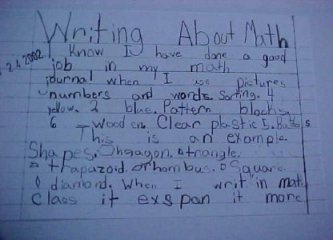 Writing About Math
I Know I have done a good
2.4.2002 job in my math
journal when I use pictures
numbers and words. Sorting. 4
yellow. 2 blue. Pattern blocks
6 wooden. Clear plastic 5. Buttons
This is an example.
Shapes. Hexagon. triangle.
trapazoid. rhombus. Square
diamond. When I writ in math
Class it exspan it more